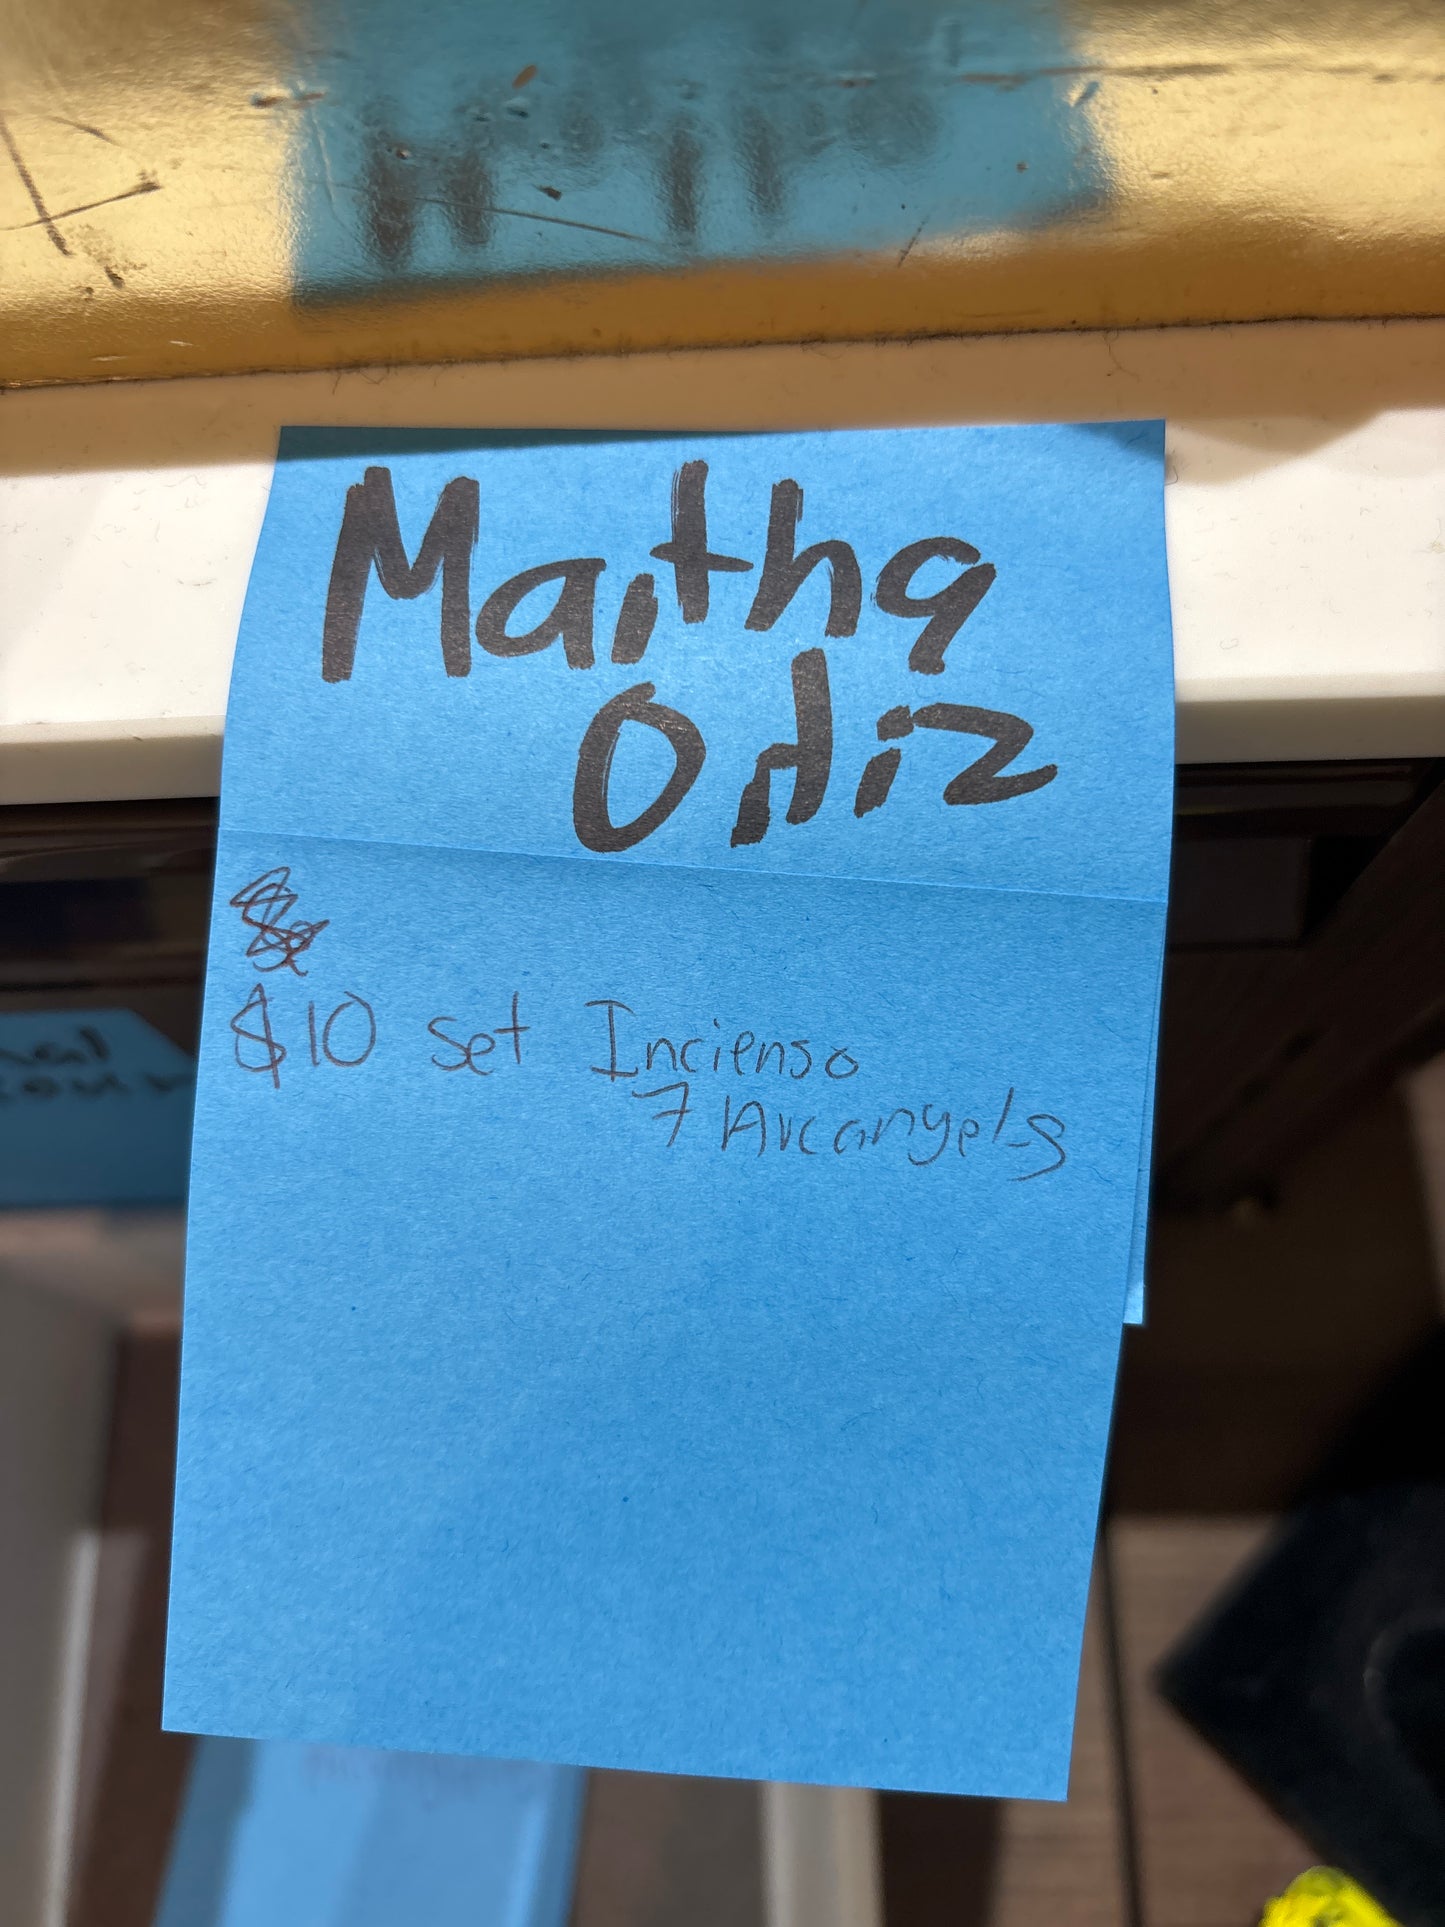 Martha
Ortiz
$10 set Incienso
7 Arcangeles